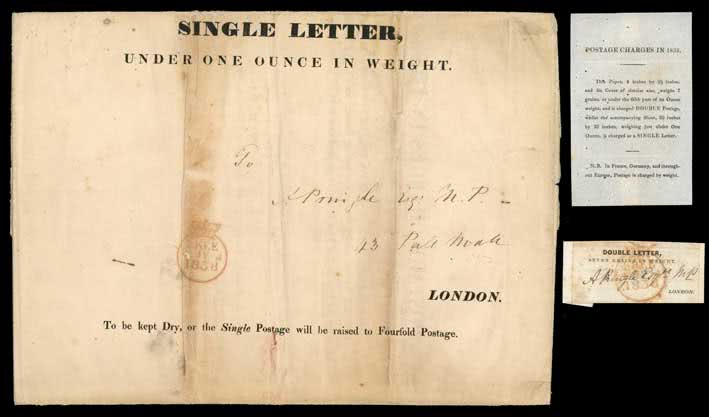 SINGLE LETTER,
UNDER ONE OUNCE IN WEIGHT.
To
A Pringle Esqr M.P.
13 Pall Mall
LONDON.
To be kept Dry, or the Single Postage will be raised to Fourfold Postage.
FREE
1838
POSTAGE CHARGES IN 1838.
This Paper, 4 inches by 2½ inches,
and its Cover of similar size, weighs 7
grains, or under the 60th part of an Ounce
weight, and is charged DOUBLE Postage,
whilst the accompanying Sheet,
by 23 inches, weighing just under One
Ounce, is charged as a SINGLE Letter.
N.B. In France, Germany, and through-
out Europe, Postage is charged by weight.
DOUBLE LETTER,
SEVEN GRAINS IN WEIGHT.
A Pringle Esqre M.P.
LONDON.